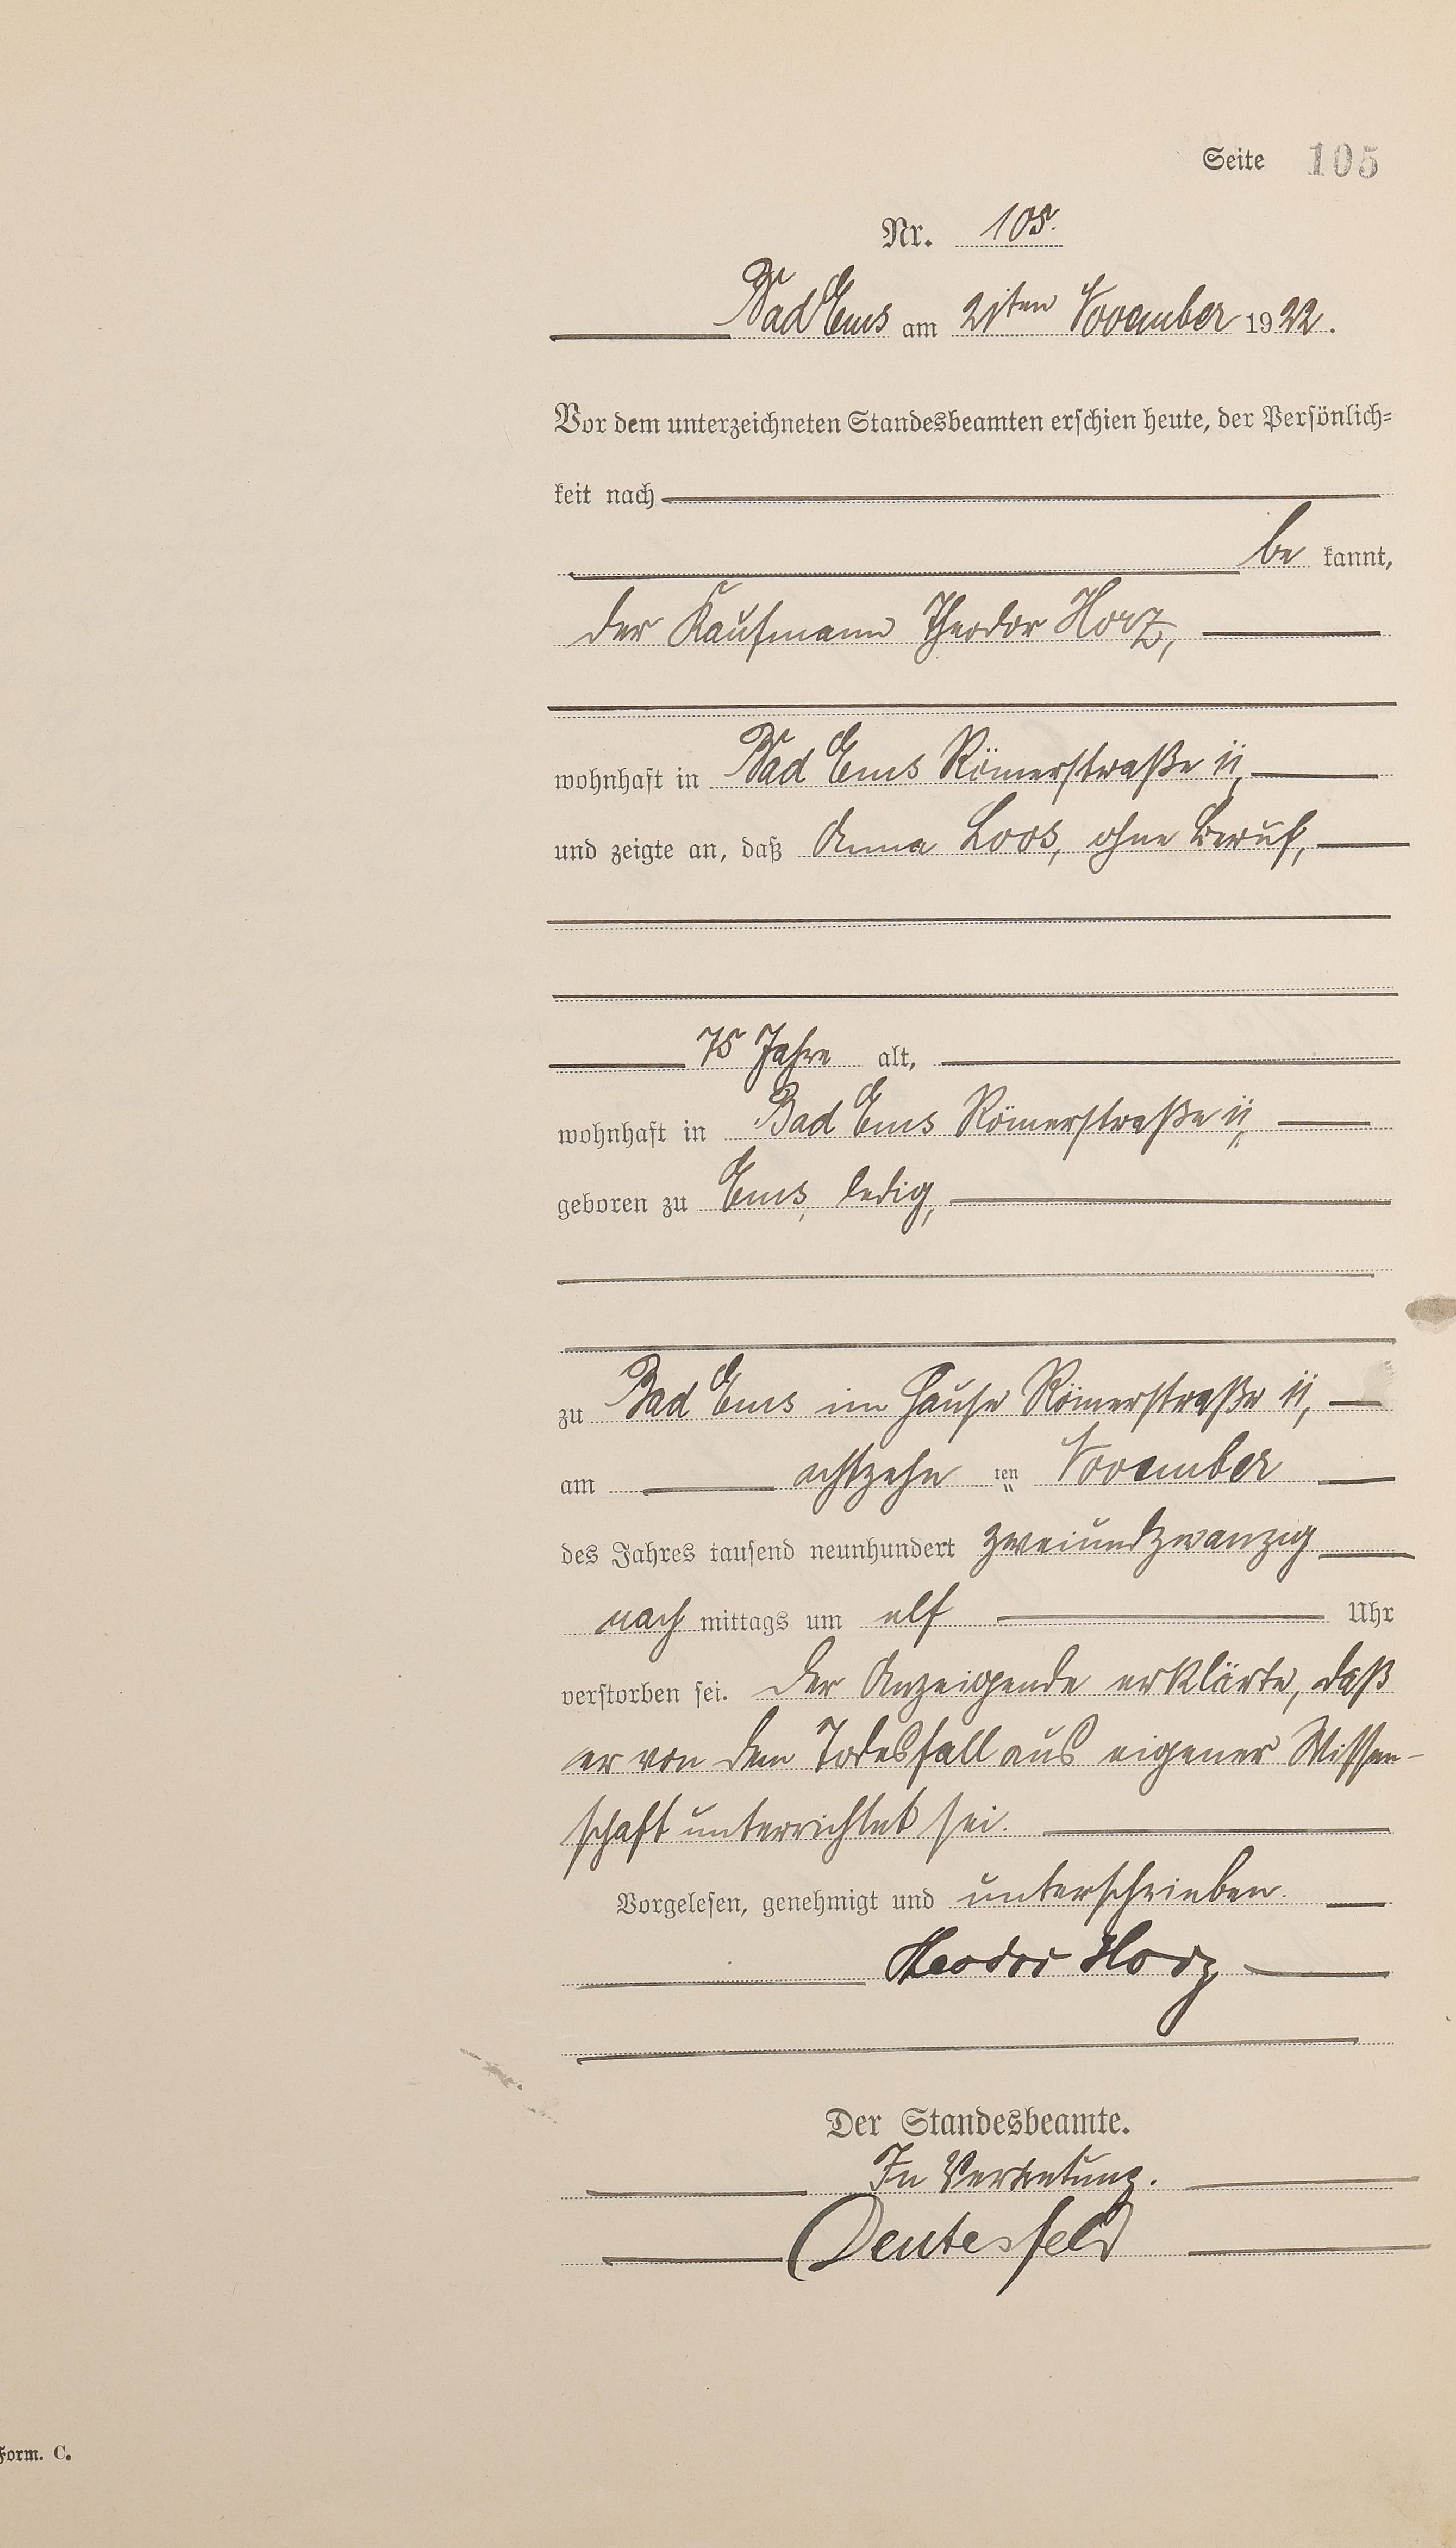 Seite 105
Nr. 105.
Bad Ems am 21ten November 1922.
Vor dem unterzeichneten Standesbeamten erschien heute, der Persönlich=
keit nach
be kannt,
der Kaufmann Theodor Horz,
wohnhaft in Bad Ems Römerstraße 11,
und zeigte an, daß Anna Loos, ohne Beruf,
75 Jahre alt,
wohnhaft in Bad Ems Römerstraße 11,
geboren zu Ems, ledig,
zu Bad Ems im Hause Römerstraße 11,
am achtzehn ten November
des Jahres tausend neunhundert zweiundzwanzig
nach mittags um elf Uhr
verstorben sei. Der Anzeigende erklärte, daß
er von dem Todesfall aus eigener Wissen-
schaft unterrichtet sei.
Vorgelesen, genehmigt und unterschrieben.
Theodor Horz
Der Standesbeamte.
In Vertretung.
Deutesfeld
Form. C.